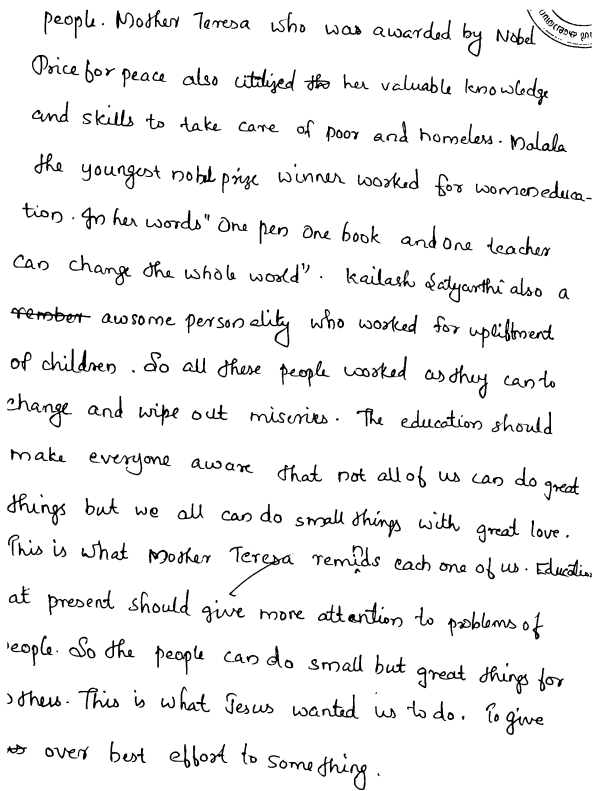 people. Mother Teresa who was awarded by Nobel
Price for peace also utilized her valuable knowledge
and skills to take care of poor and homeless. Malala
the youngest nobel prize winner worked for women educa-
tion. In her words " One pen one book and one teacher
can change the whole world". Kailash Satyarthi also a
awsome personality who worked for upliftment
of children. So all these people worked as they can to
change and wipe out miseries. The education should
make everyone aware that not all of us can do great
things but we all can do small things with great love.
This is what Mother Teresa reminds each one of us. Education
at present should give more attention to problems of
people. So the people can do small but great things for
others. This is what Jesus wanted us to do. To give
over best effort to something.